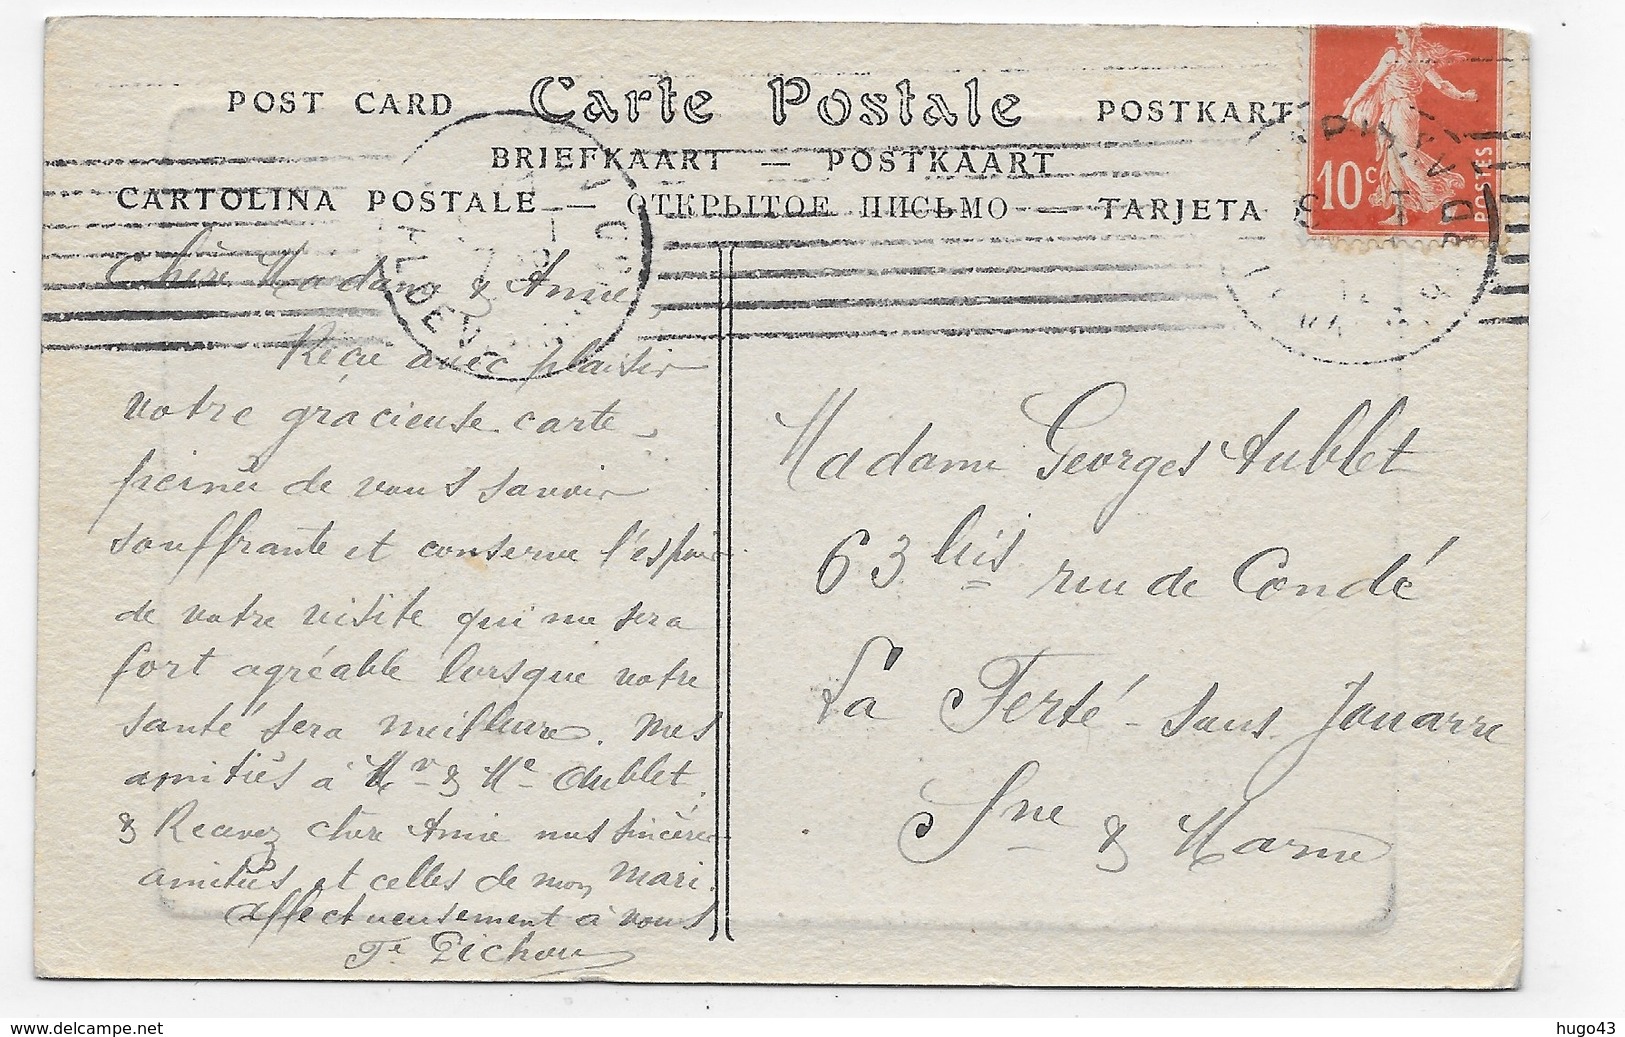 POST CARD Carte Postale POSTKARTE
BRIEFKAART — POSTKAART
CARTOLINA POSTALE — ОТКРЫТОЕ ПИСЬМО — TARJETA
10c
POSTES
Chère Madame & Amie,
Reçu avec plaisir
votre gracieuse carte,
peinée de vous savoir
souffrante et conserve l'espoir
de votre visite qui me sera
fort agréable lorsque votre
santé sera meilleure. Mes
amitiés à Mr & Me Aublet,
& Recevez chère Amie nos sincères
amitiés et celles de mon mari.
affectueusement à vous
Pichon
Madame Georges Aublet
63 bis rue de Condé
La Ferté-sous Jouarre
Sne & Marne
www.delcampe.net
hugo43